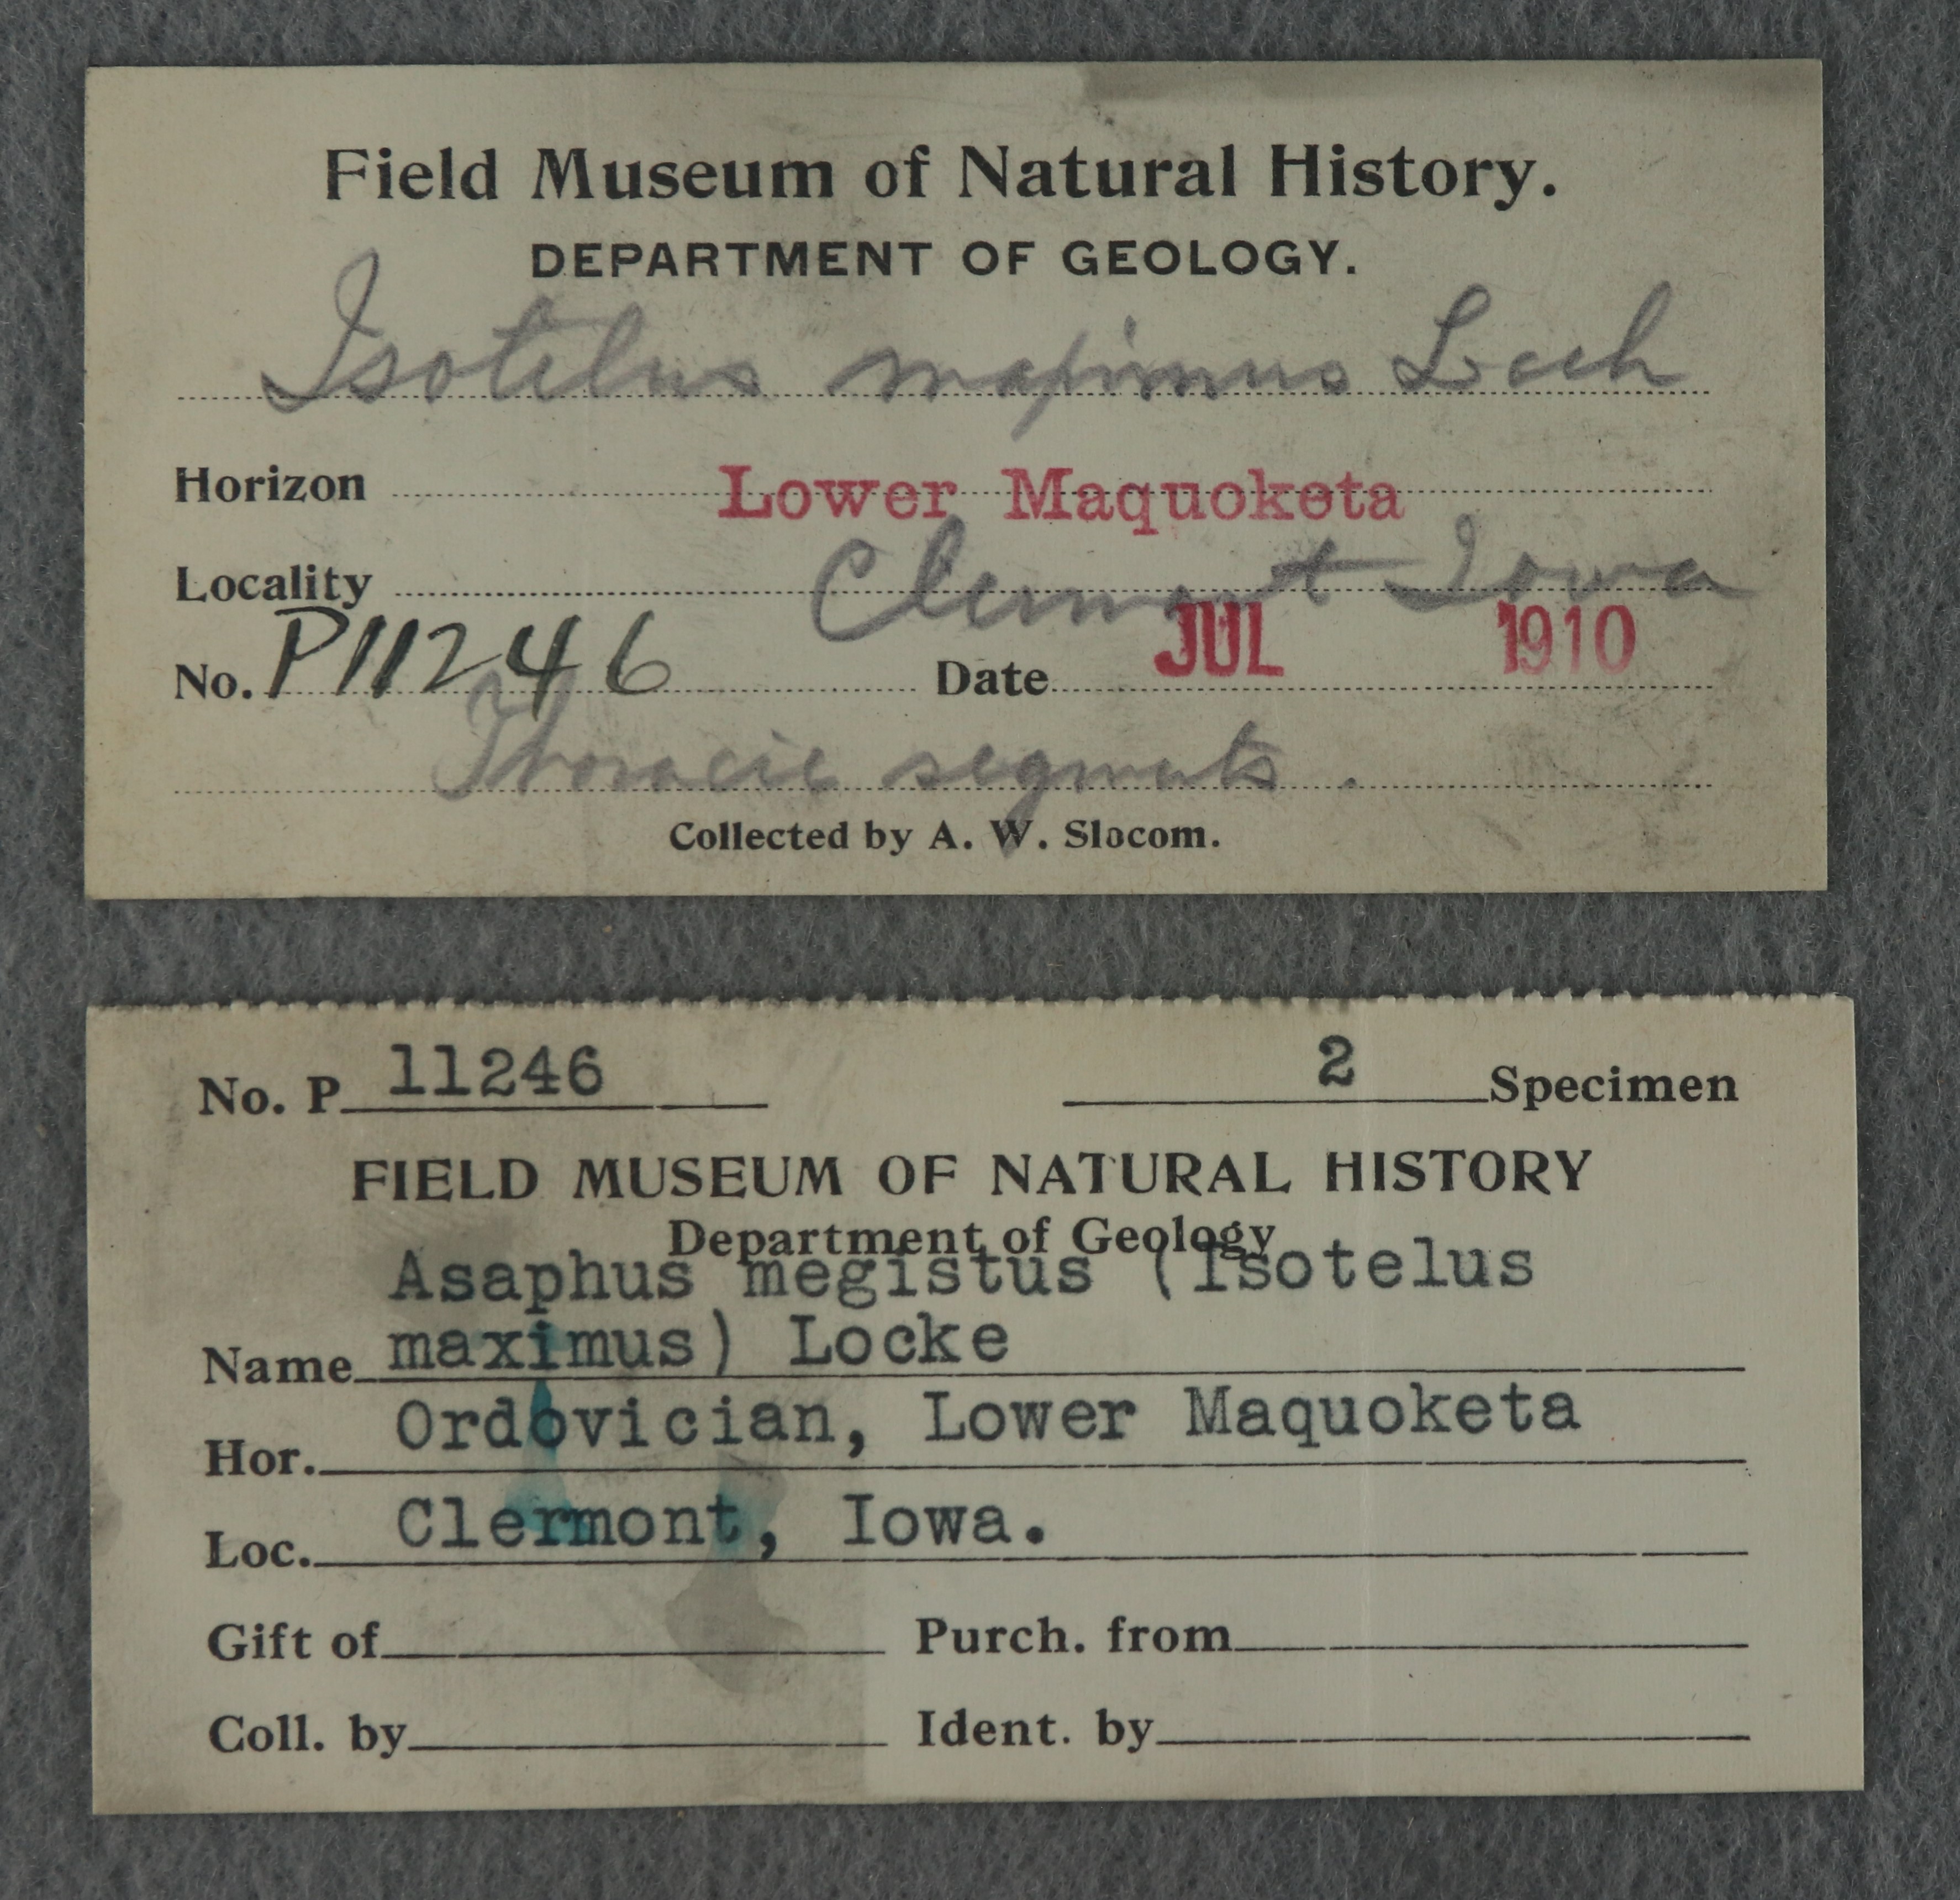 Field Museum of Natural History.
DEPARTMENT OF GEOLOGY.
Isotelus maximus Lock
Horizon Lower Maquoketa
Locality Clermont Iowa
No. P11246 Date JUL 1910
Thoracic segments.
Collected by A. W. Slocom.
No. P 11246 2 Specimen
FIELD MUSEUM OF NATURAL HISTORY
Department of Geology
Asaphus megistus (Isotelus
Name maximus) Locke
Hor. Ordovician, Lower Maquoketa
Loc. Clermont, Iowa.
Gift of Purch. from
Coll. by Ident. by